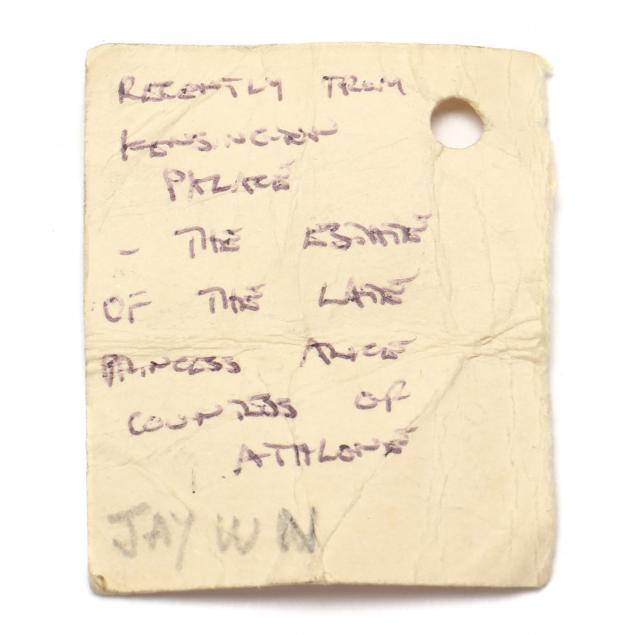 RECENTLY FROM
KENSINGTON
PALACE
- THE ESTATE
OF THE LATE
PRINCESS ALICE
COUNTESS OF
ATHLONE
JAY W N